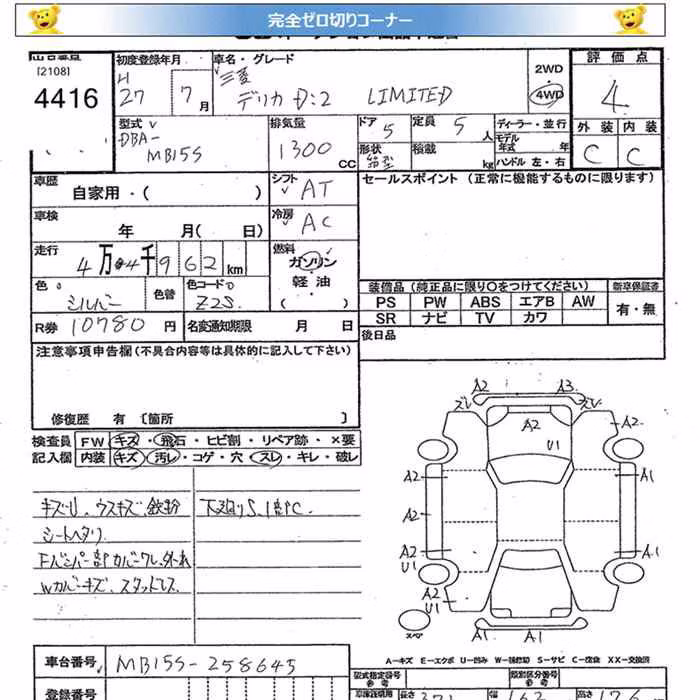 完全ゼロ切りコーナー
[2108]
4416
初度登録年月
H
27 7月
車名・グレード
三菱
デリカ D:2 LIMITED
2WD
4WD
評価点
4
外装 内装
C C
型式
DBA-
MB15S
排気量
1300 CC
ドア 5
定員 5 人
形状
箱型
積載 kg
ディーラー・並行
モデル
年式 年
ハンドル 左・右
車歴 自家用・( )
シフト AT
セールスポイント (正常に機能するものに限ります)
車検 年 月( 日)
冷房 AC
走行 4万4千962km
燃料
ガソリン
軽油
( )
色 シルバー
色替
色コード
Z2S
R券 10780 円
名変通知期限 月 日
装備品 (純正品に限り○をつけてください)
新車保証書
PS PW ABS エアB AW
有・無
SR ナビ TV カワ
後日品
注意事項申告欄 (不具合内容等は具体的に記入して下さい)
修復歴 有 〔箇所 〕
検査員 FW キズ・飛石・ヒビ割・リペア跡・×要
記入欄 内装 キズ・汚レ・コゲ・穴・スレ・キレ・破レ
キズU、ウスキズ、鉄粉
シートヘタリ
Fバンパー部カバーワレ、外れ
Wカバーキズ、スタッドレス
下廻りS、1部PC
A2 A3
ズレ ズレ
A2 A2
U1
A2 A1
A2
A2 A1
U1
A2 A2
U1
スペア
A1 A1
A−キズ E−エクボ U−凹み W−補修跡 S−サビ C−腐食 XX−交換済
車台番号 MB15S-258645
登録番号
型式指定番号
類別区分番号